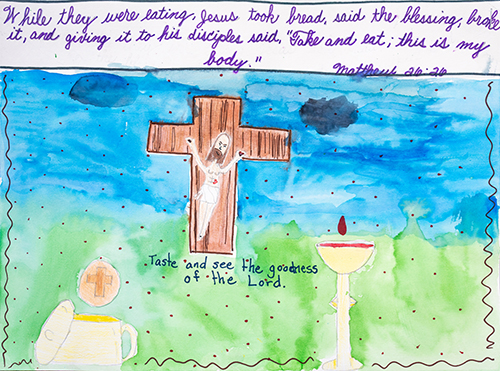 While they were eating, Jesus took bread, said the blessing, broke
it, and giving it to his disciples said, "Take and eat; this is my
body."
Matthew 26:26
Taste and see the goodness
of the Lord.